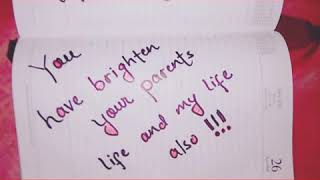 You
have brighten
your parents
life and my life
also !!!
26